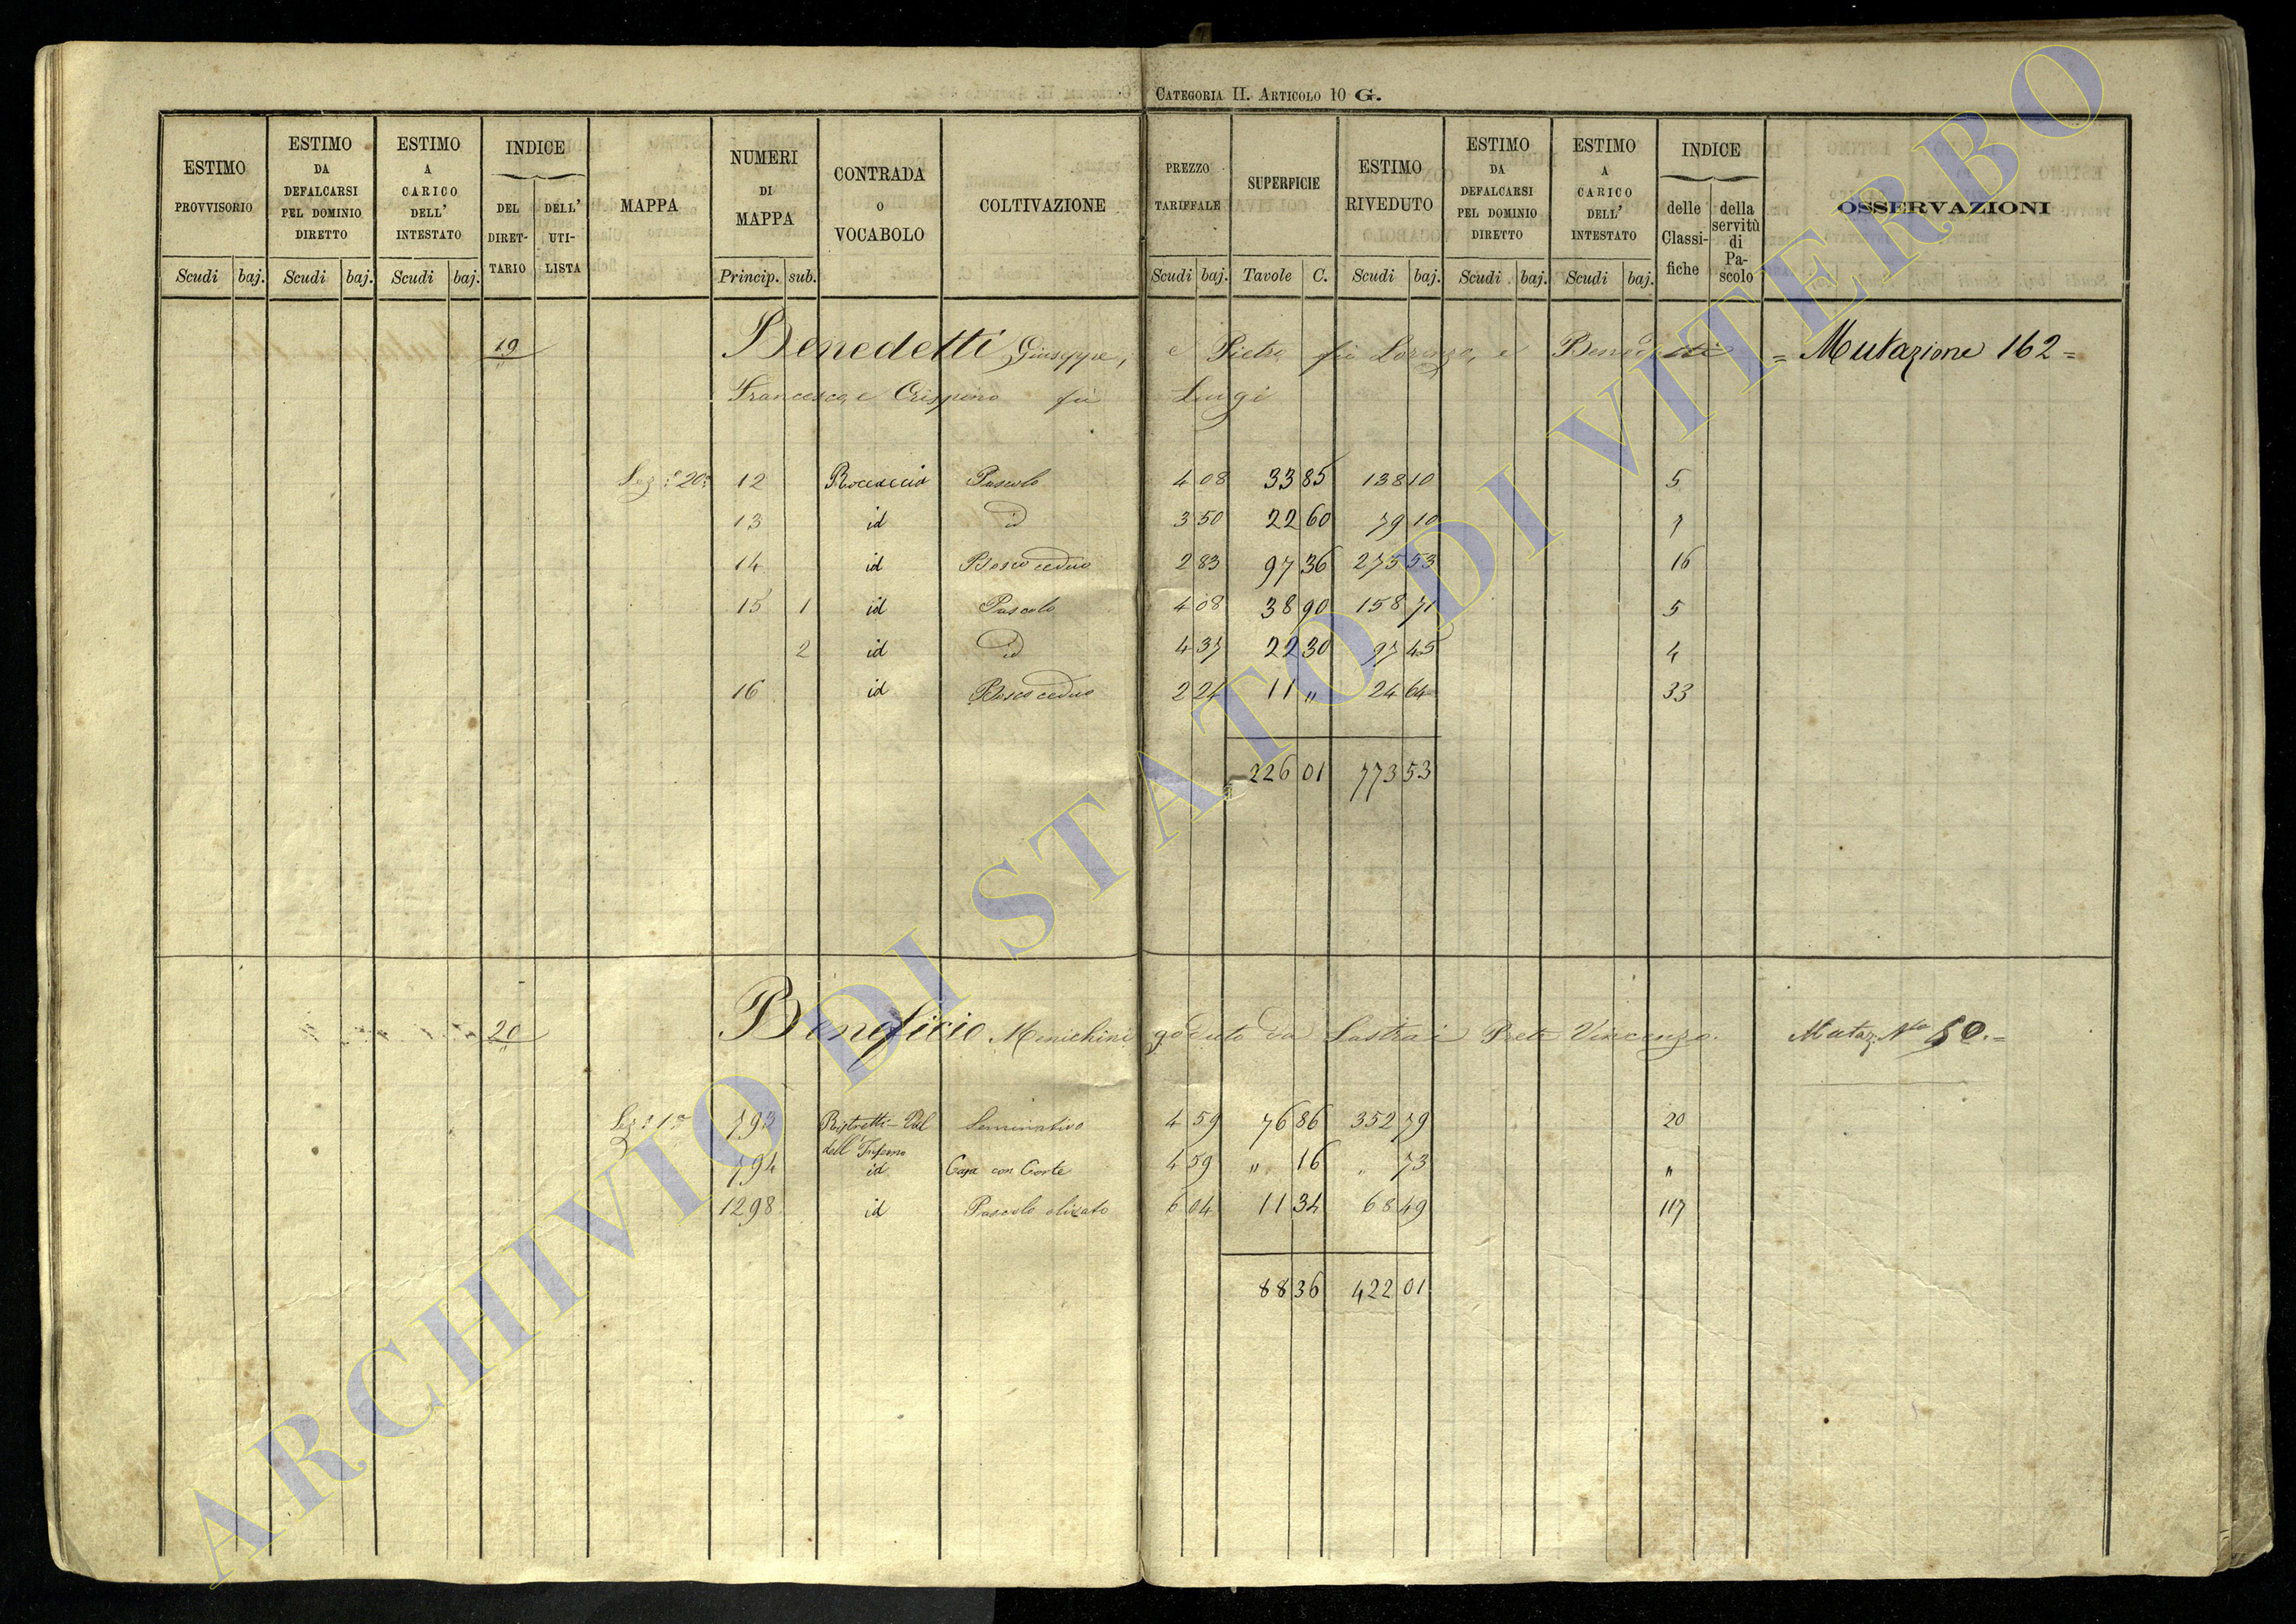 CATEGORIA II. ARTICOLO 10 G.
ESTIMO PROVVISORIO Scudi baj. ESTIMO DA DEFALCARSI PEL DOMINIO DIRETTO Scudi baj. ESTIMO A CARICO DELL' INTESTATO Scudi baj. INDICE DEL DIRETTARIO DELL' UTILISTA MAPPA NUMERI DI MAPPA Princip. sub. CONTRADA O VOCABOLO COLTIVAZIONE PREZZO TARIFFALE Scudi baj. SUPERFICIE Tavole C. ESTIMO RIVEDUTO Scudi baj. ESTIMO DA DEFALCARSI PEL DOMINIO DIRETTO Scudi baj. ESTIMO A CARICO DELL' INTESTATO Scudi baj. INDICE delle Classifiche della servitù di Pascolo OSSERVAZIONI
19 Benedetti Giuseppe, e Pietro fù Lorenzo, e Benedetti = Mutazione 162 =
Francesco, e Crispino fù Luigi
Sez: 20: 12 Roccaccia Pascolo 4 08 33 85 138 10 5
13 id id 3 50 22 60 79 10 7
14 id Bosco ceduo 2 83 97 36 275 53 16
15 1 id Pascolo 4 08 38 90 158 71 5
2 id id 4 37 22 30 97 45 4
16 id Bosco ceduo 2 24 11 " 24 64 33
226 01 773 53
20 Beneficio Menichini goduto da Lastrai Prete Vincenzo. Mutaz: No 50. =
Sez: 1a 793 Ristretti - Val dell'Inferno Seminativo 4 59 76 86 352 79 20
794 id Casa con Corte 4 59 " 16 " 73 "
1298 id Pascolo olivato 6 04 11 34 68 49 117
88 36 422 01
ARCHIVIO DI STATO DI VITERBO